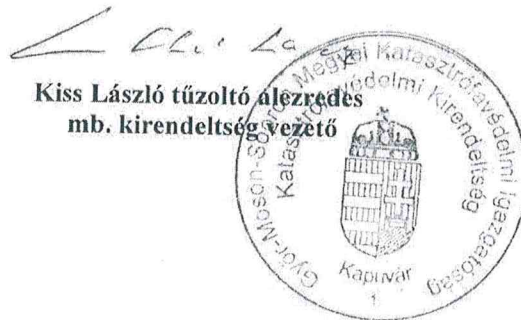 Kiss László tűzoltó alezredes
mb. kirendeltség vezető
Győr-Moson-Sopron Megyei Katasztrófavédelmi Igazgatóság
Katasztrófavédelmi Kirendeltség
Kapuvár
1.